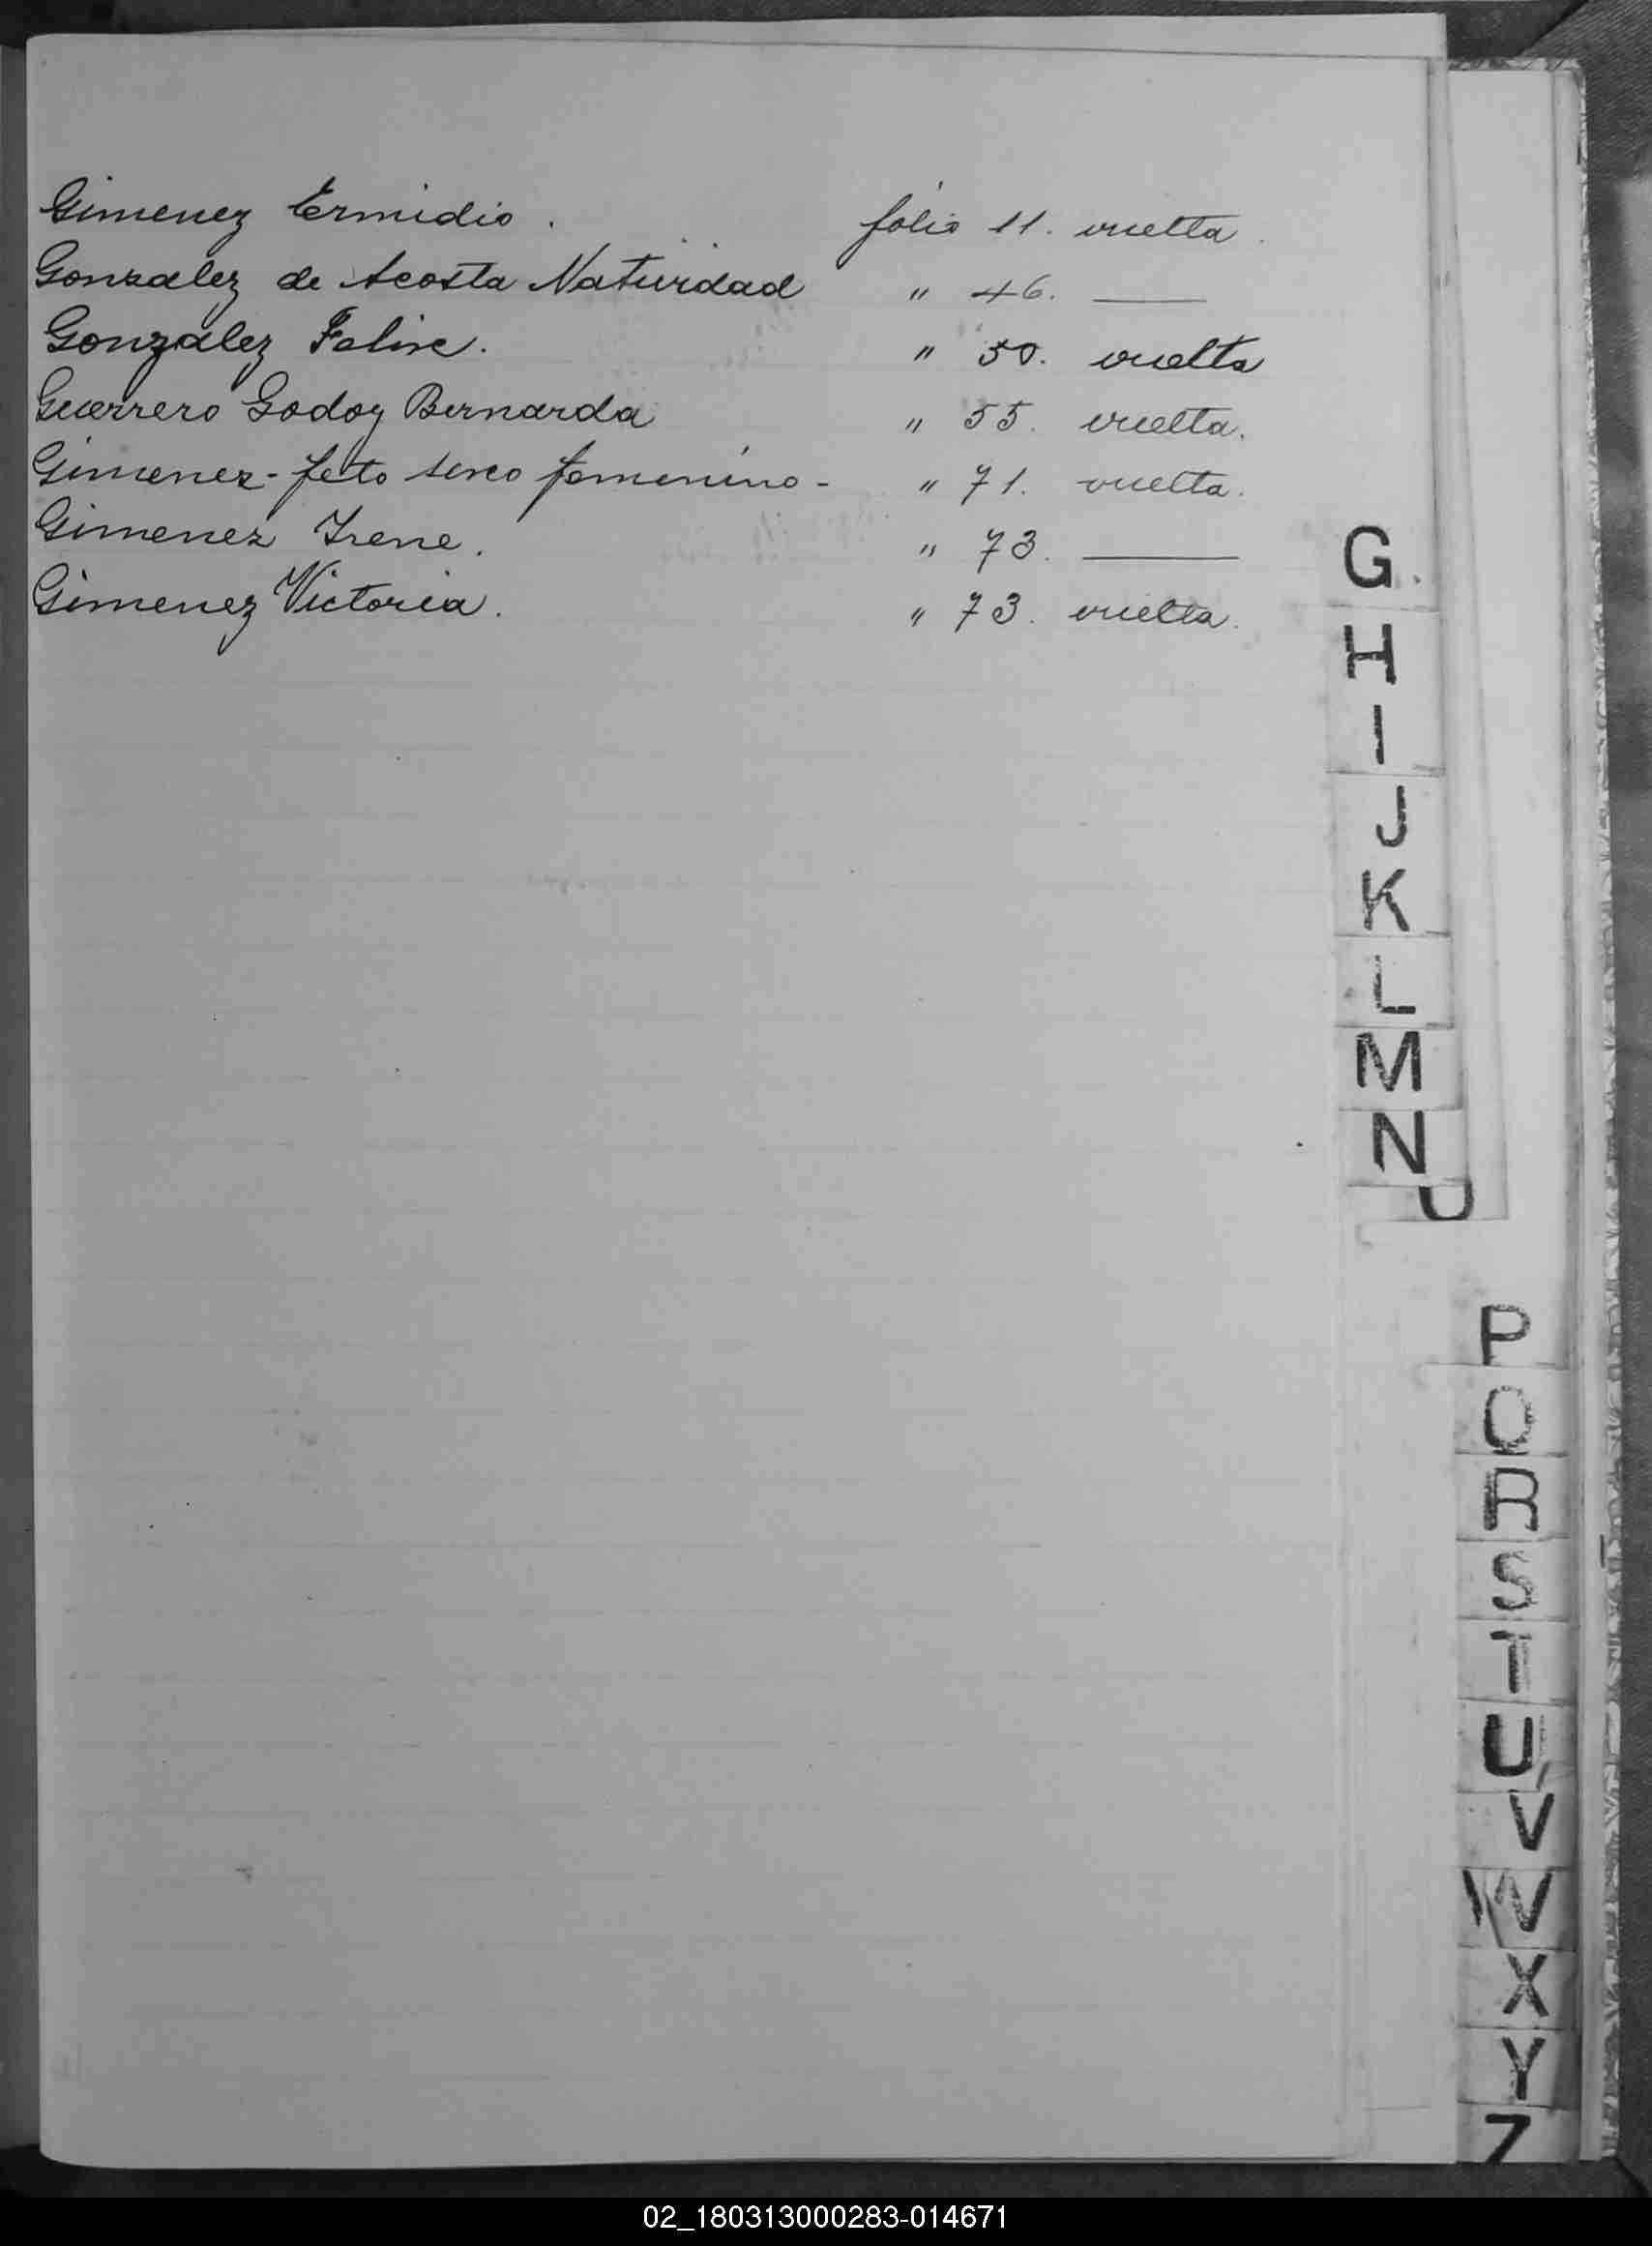 Gimenez Ermidio. folio 11. vuelta.
Gonzalez de Acosta Natividad " 46. ——
Gonzalez Felix. " 50. vuelta
Guerrero Godoy Bernarda " 55. vuelta.
Gimenez - feto sexo femenino - " 71. vuelta.
Gimenez Irene. " 73. ——
Gimenez Victoria. " 73. vuelta.
G
H
I
J
K
L
M
N
O
P
Q
R
S
T
U
V
W
X
Y
Z
02_180313000283-014671